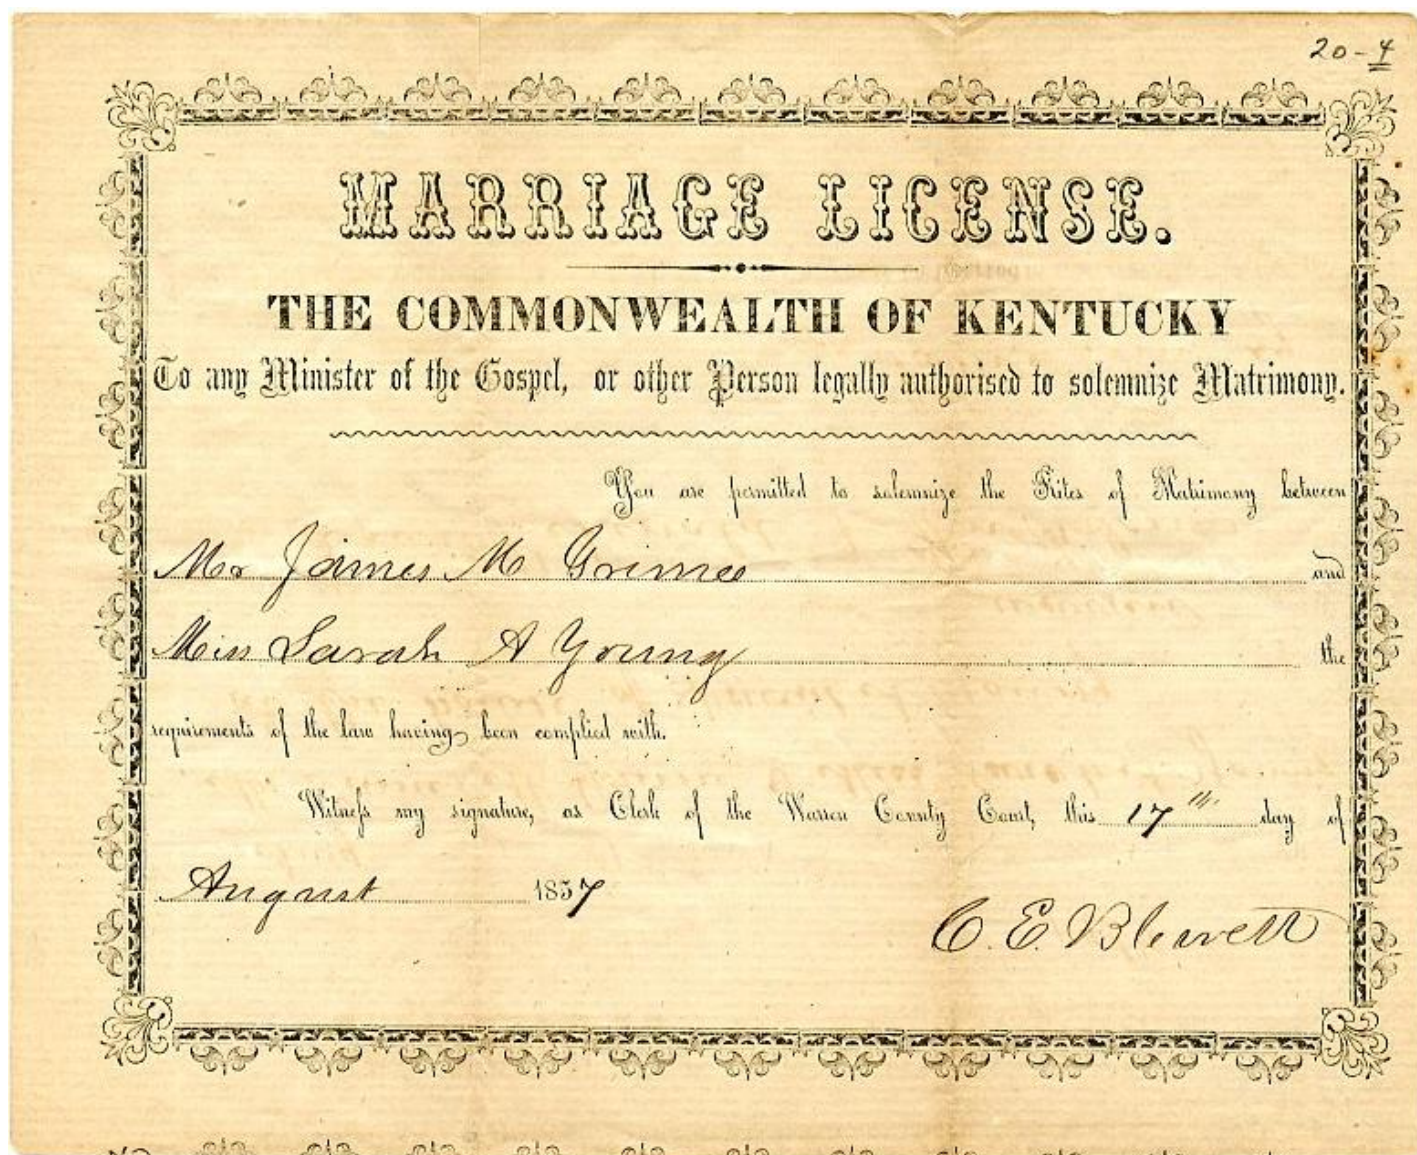 20-4
MARRIAGE LICENSE.
THE COMMONWEALTH OF KENTUCKY
To any Minister of the Gospel, or other Person legally authorised to solemnize Matrimony.
You are permitted to solemnize the Rites of Matrimony between
Mr James M Grimes and
Miss Sarah A Young the
requirements of the law having been complied with.
Witness my signature, as Clerk of the Warren County Court, this 17th day of
August 1857
C. E. Blewett